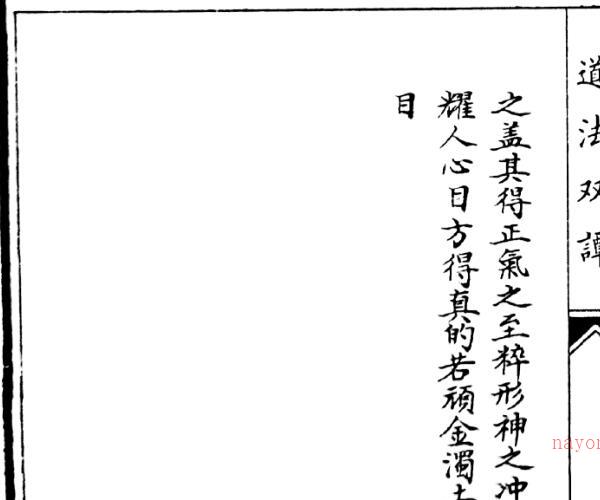 道法双譚
之盖其得正氣之至粹形神之冲
耀人心目方得真的若頑金濁土
目
nayon